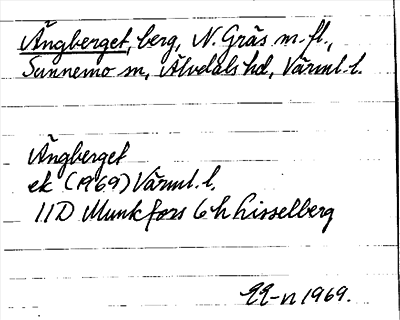 Ängberget, berg, N. Gräs m. fl.,
Sunnemo sn, Älvdals hd, Värml. l.
Ängberget
ek (1969) Värml. l.
11D Munkfors 6 h Lisselberg
1969.